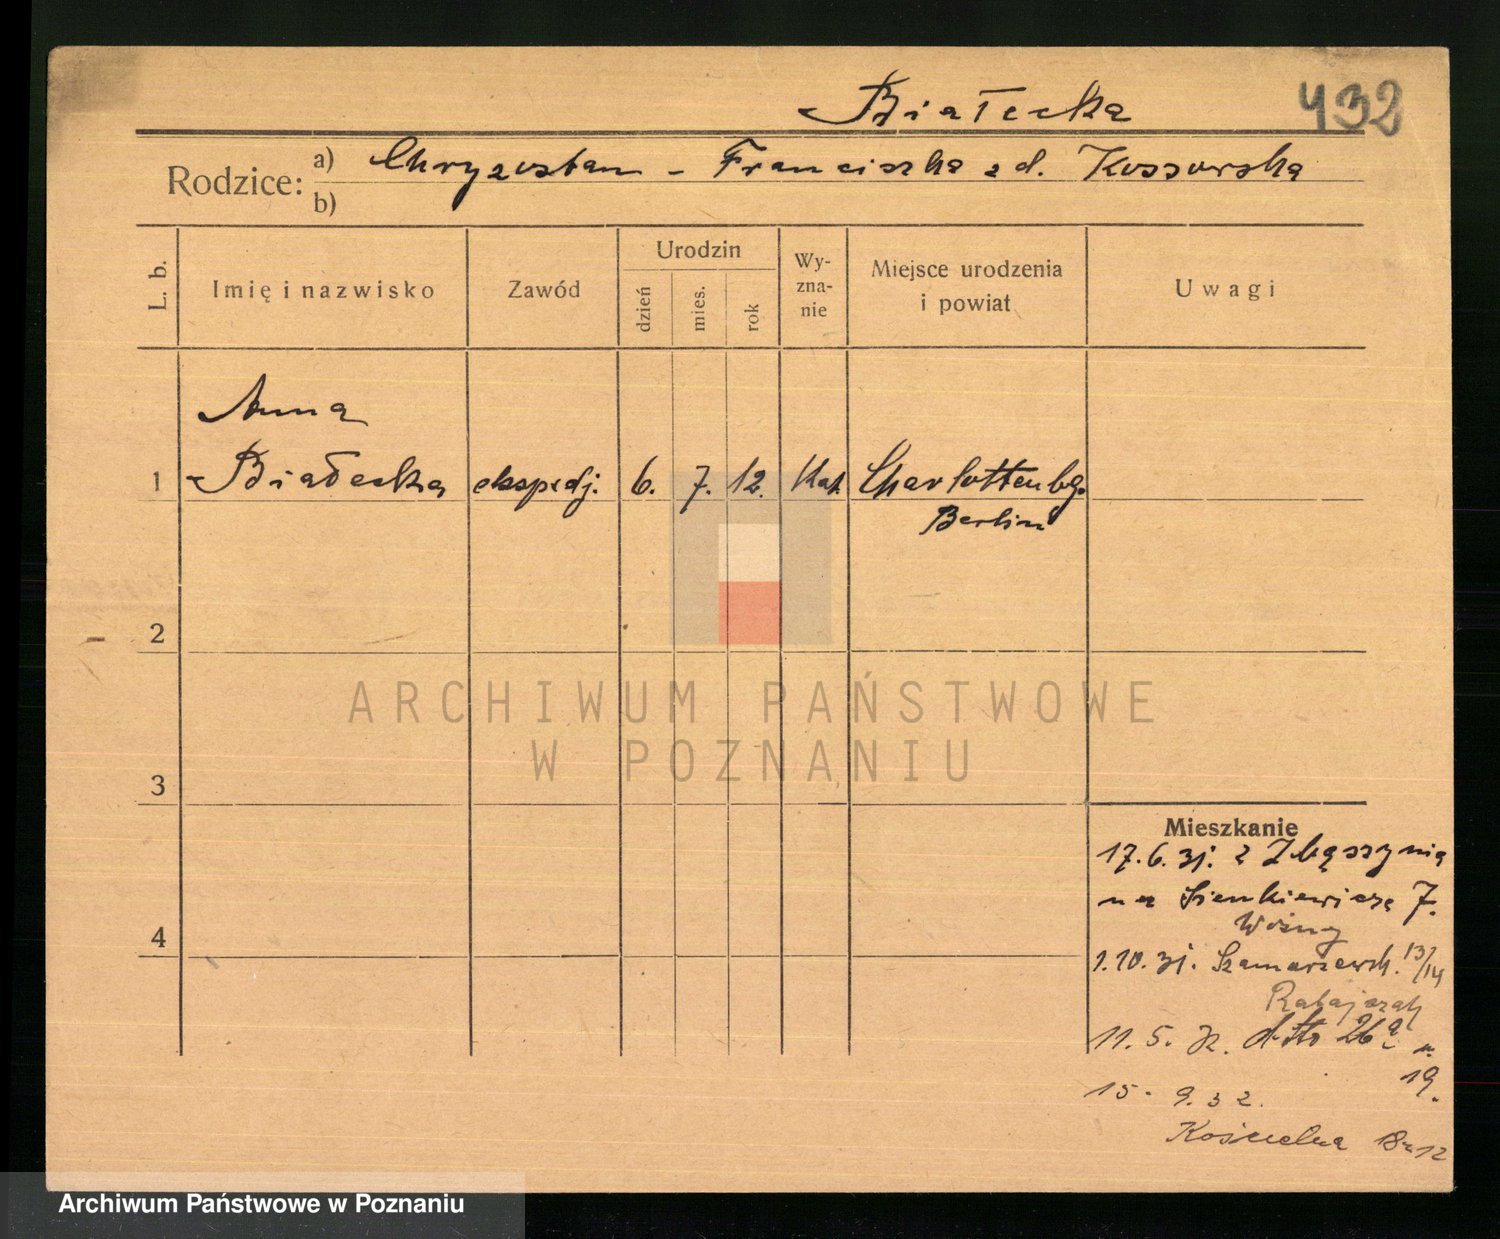 Białecka 432
Rodzice: a) Chryzostom - Franciszka z d. Kossowska
b)
L. b. Imię i nazwisko Zawód Urodzin dzień mies. rok Wyznanie Miejsce urodzenia i powiat Uwagi
Anna
1 Białecka ekspedj. 6. 7. 12. Kat. Charlottenbg.
Berlin
2
ARCHIWUM PAŃSTWOWE
W POZNANIU
3
Mieszkanie
17.6.31. z Zbąszynia
na Sienkiewicza 7.
Woźny
4
1.10.31. Szamarzewsk. 13/14
Ratajczak
11. 5. 32. dtto 26a
19.
15. 9. 32.
Kościelna 18 12
Archiwum Państwowe w Poznaniu